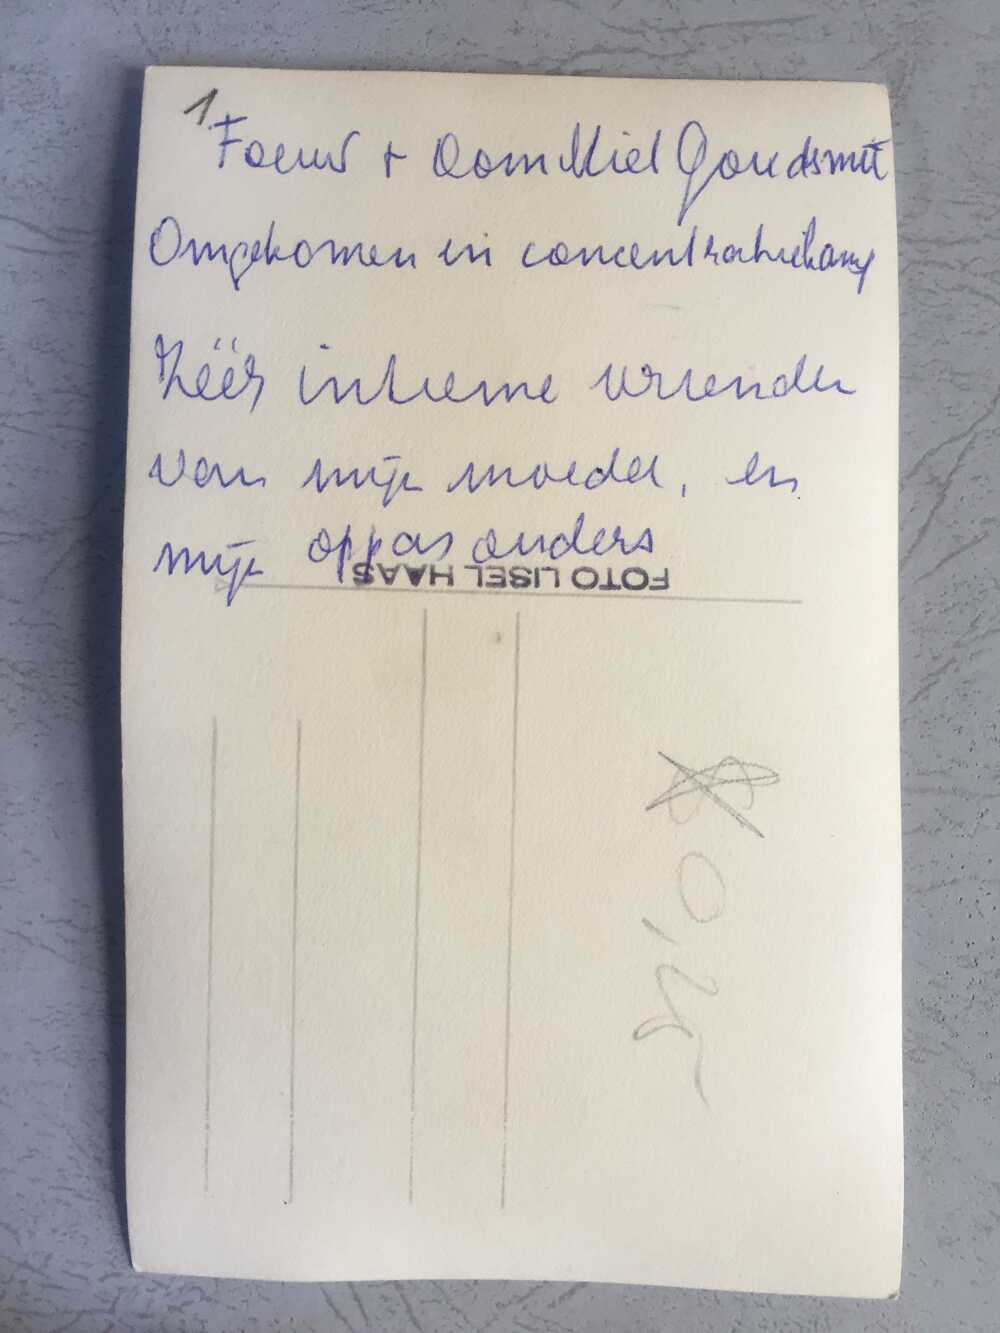 1.
+ Oom Miel Goudsmit
Omgekomen in concentratiekamp
Zéér intieme vrienden
van mijn moeder, en
mijn oppas ouders
FOTO LISEL HAAS